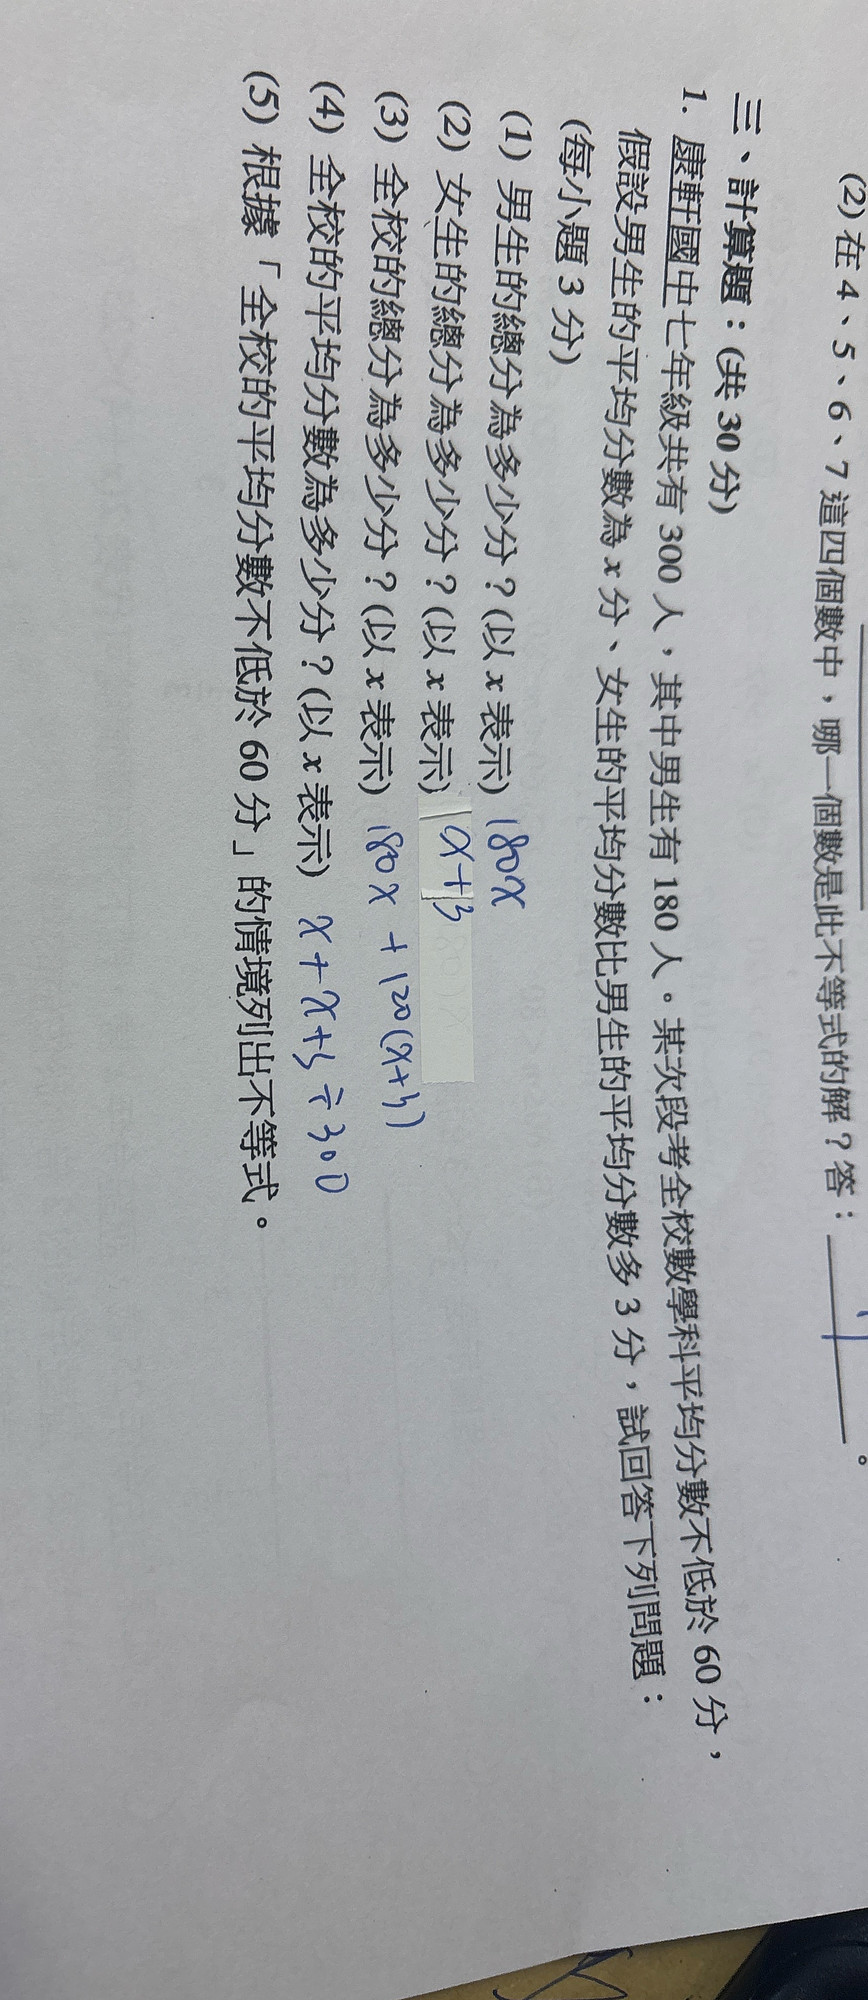 (2) 在 4、5、6、7 這四個數中，哪一個數是此不等式的解？答：。
三、計算題：(共 30 分)
1. 康軒國中七年級共有 300 人，其中男生有 180 人。某次段考全校數學科平均分數不低於 60 分，
假設男生的平均分數為 x 分、女生的平均分數比男生的平均分數多 3 分，試回答下列問題：
(每小題 3 分)
(1) 男生的總分為多少分？(以 x 表示) 180x
(2) 女生的總分為多少分？(以 x 表示) x+3
(3) 全校的總分為多少分？(以 x 表示) 180x+120(x+3)
(4) 全校的平均分數為多少分？(以 x 表示) x+x+3÷300
(5) 根據「全校的平均分數不低於 60 分」的情境列出不等式。